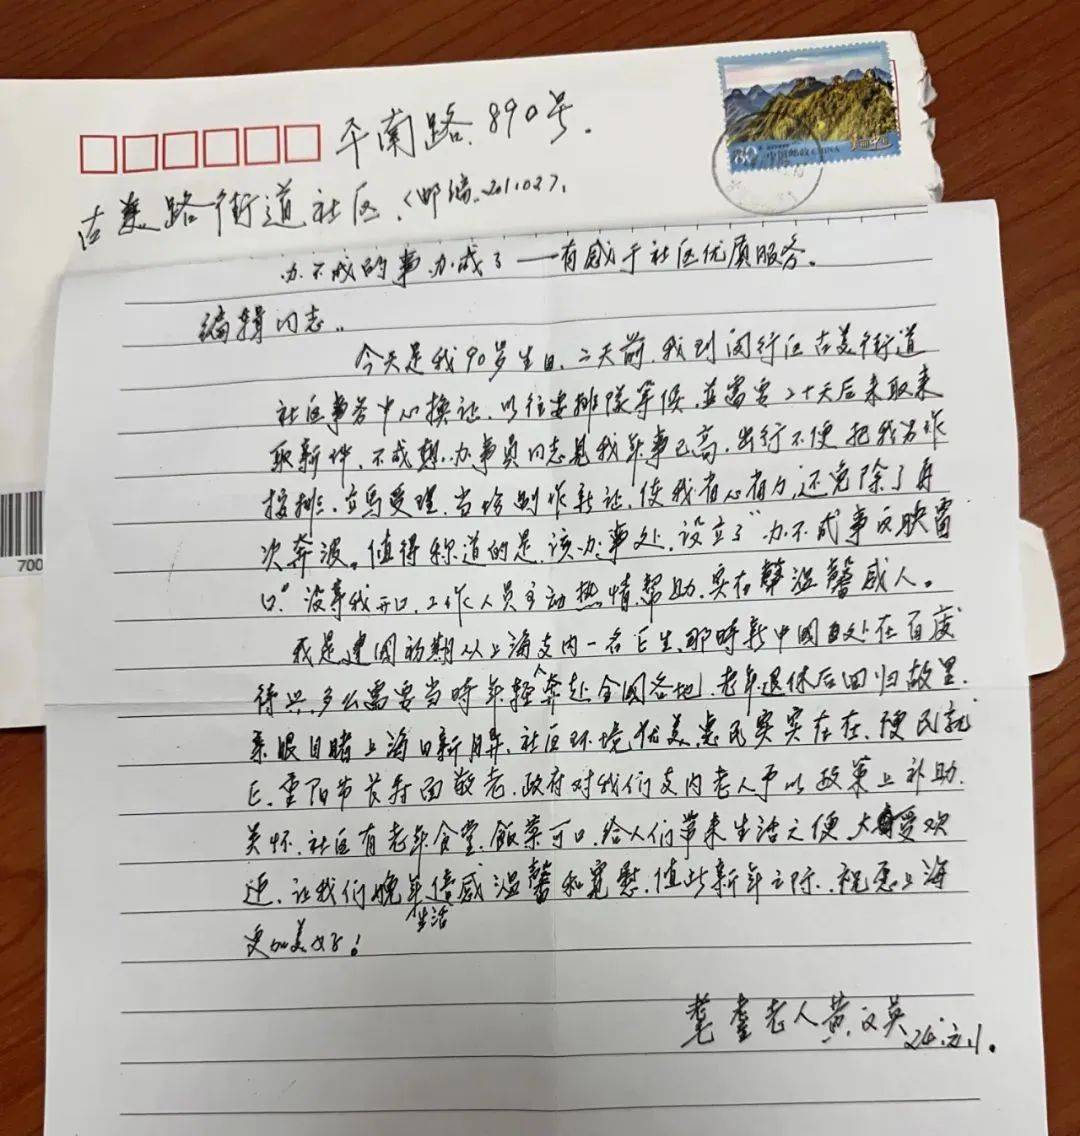 平南路.890号.
古美路街道社区.(邮编.201102).
80 中国邮政 CHINA
700
办不成的事办成了——有感于社区优质服务。
编辑同志..
今天是我90岁生日.二天前.我到闵行区古美街道
社区事务中心换证.以往要排隊等候.並需要二十天后来取来
取新件.不成想.办事员同志見我年事已高.出行不便把我另作
按排.立馬受理.当场制作新证.使我省心省力.还免除了再
次奔波。值得称道的是.该办事处.设立了"办不成事反映窗
口"没等我开口.工作人员主动热情幫助.实在溫馨感人。
我是建國初期从上海支内一名醫生.那時新中國处在百废
待兴.多么需要当時年輕人奔赴全國各地.老年退休后回归故里.
亲眼目睹上海日新月异.社区环境优美.惠民实实在在.便民就
医.重阳节长寿面敬老.政府对我们支内老人予以政策上补助.
关怀.社区有老年食堂.飯菜可口.给人们带来生活之便.大受欢
迎.让我们晚年生活倍感溫馨和寬慰.值此新年之际..祝愿上海
更加美好!
耄耋老人黄文英 24.元.1.